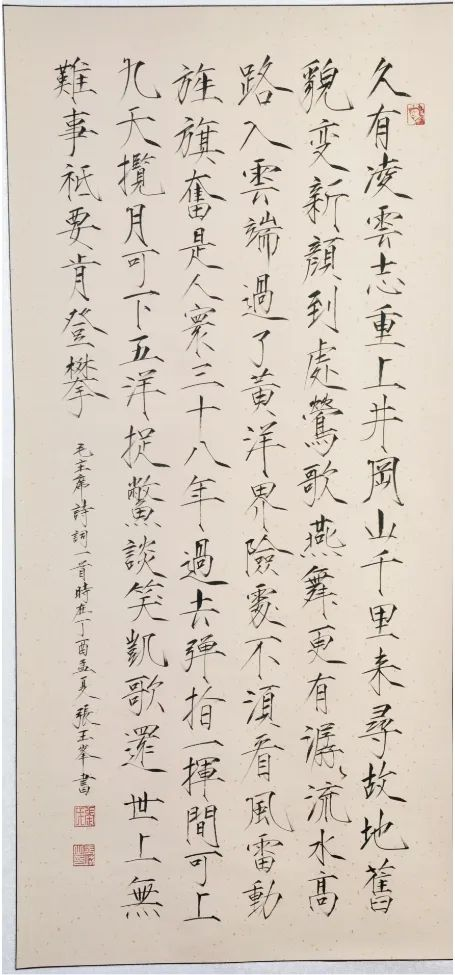 久有凌雲志重上井岡山千里来尋故地舊
貌变新顏到處鶯歌燕舞更有潺〻流水高
路入雲端過了黃洋界險處不須看風雷動
旌旗奮是人寰三十八年過去弹指一揮間可上
九天攬月可下五洋捉鱉談笑凱歌還世上無
難事祗要肯登攀
毛主席詩詞一首時在丁酉孟夏張玉峯書